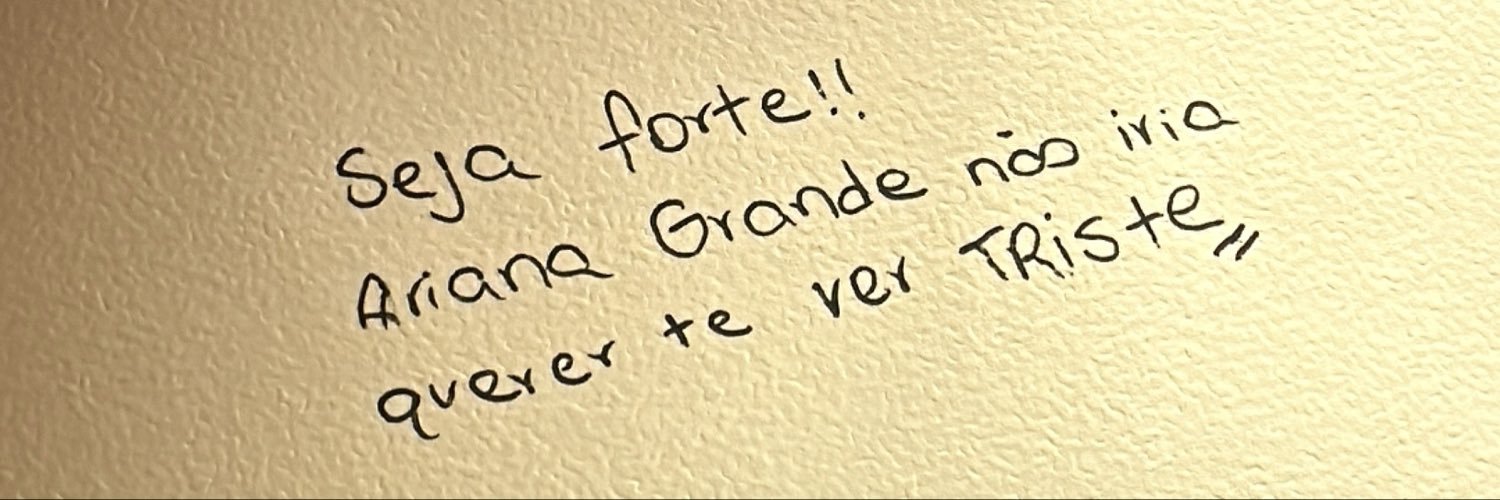 Seja forte!!
Ariana Grande não iria
querer te ver TRiste"